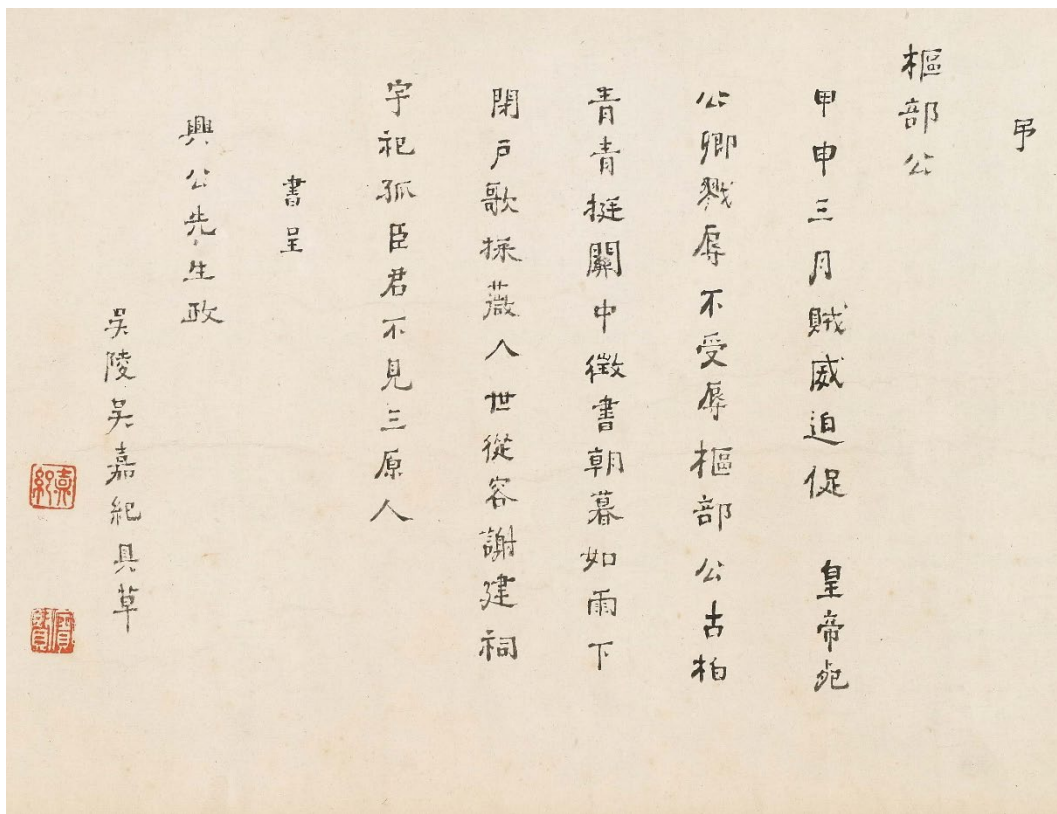 弔
樞部公
甲申三月賊威迫促 皇帝死
公卿戮辱不受辱樞部公古柏
青青挺關中徵書朝暮如雨下
閉戶歌採薇人世從容謝建祠
宇祀孤臣君不見三原人
書呈
興公先生政
吳陵吳嘉紀具草
嘉紀
賓賢